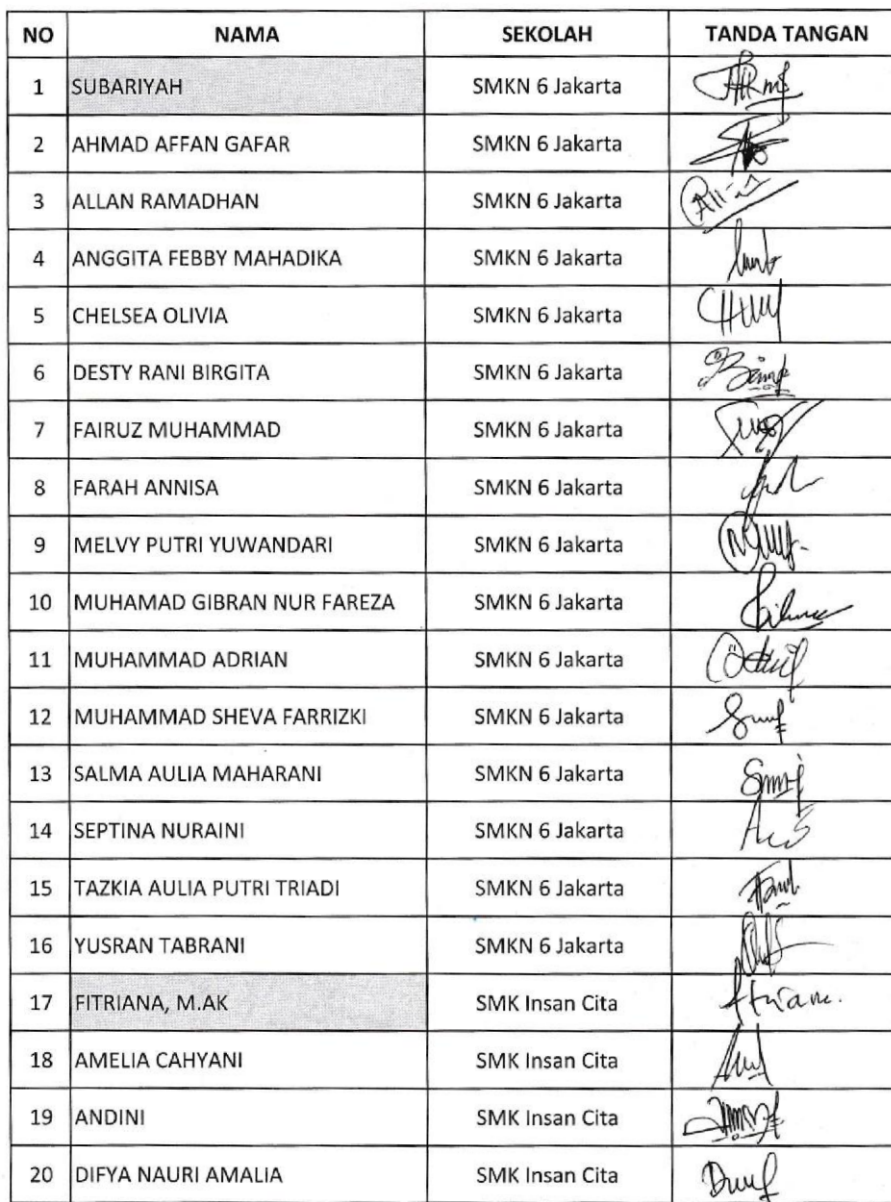 NO NAMA SEKOLAH TANDA TANGAN
1 SUBARIYAH SMKN 6 Jakarta
2 AHMAD AFFAN GAFAR SMKN 6 Jakarta
3 ALLAN RAMADHAN SMKN 6 Jakarta
4 ANGGITA FEBBY MAHADIKA SMKN 6 Jakarta
5 CHELSEA OLIVIA SMKN 6 Jakarta
6 DESTY RANI BIRGITA SMKN 6 Jakarta
7 FAIRUZ MUHAMMAD SMKN 6 Jakarta
8 FARAH ANNISA SMKN 6 Jakarta
9 MELVY PUTRI YUWANDARI SMKN 6 Jakarta
10 MUHAMAD GIBRAN NUR FAREZA SMKN 6 Jakarta
11 MUHAMMAD ADRIAN SMKN 6 Jakarta
12 MUHAMMAD SHEVA FARRIZKI SMKN 6 Jakarta
13 SALMA AULIA MAHARANI SMKN 6 Jakarta
14 SEPTINA NURAINI SMKN 6 Jakarta
15 TAZKIA AULIA PUTRI TRIADI SMKN 6 Jakarta
16 YUSRAN TABRANI SMKN 6 Jakarta
17 FITRIANA, M.AK SMK Insan Cita
18 AMELIA CAHYANI SMK Insan Cita
19 ANDINI SMK Insan Cita
20 DIFYA NAURI AMALIA SMK Insan Cita